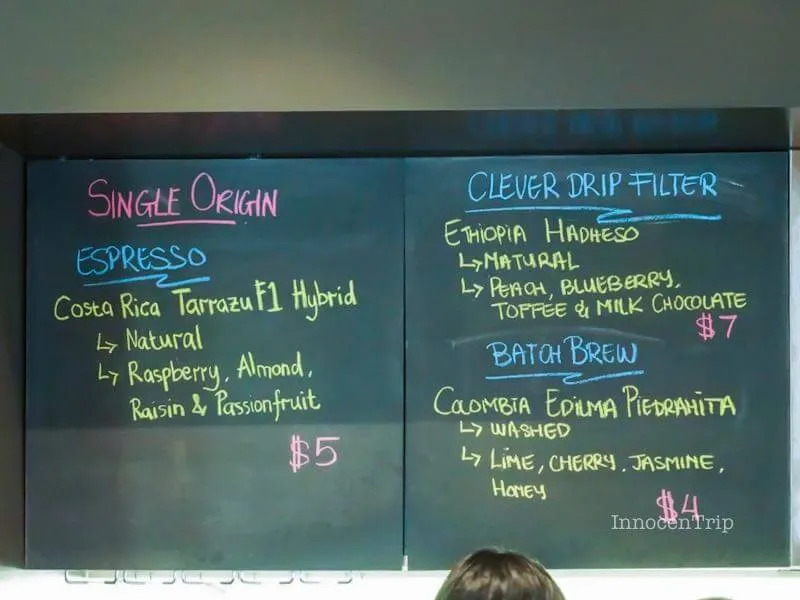 SINGLE ORIGIN
ESPRESSO
Costa Rica Tarrazu F1 Hybrid
↳ Natural
↳ Raspberry, Almond,
Raisin & Passionfruit
$5
CLEVER DRIP FILTER
ETHIOPIA HADHESO
↳ NATURAL
↳ PEACH, BLUEBERRY,
TOFFEE & MILK CHOCOLATE
$7
BATCH BREW
COLOMBIA EDILMA PIEDRAHITA
↳ WASHED
↳ LIME, CHERRY, JASMINE,
HONEY
$4
InnocenTrip